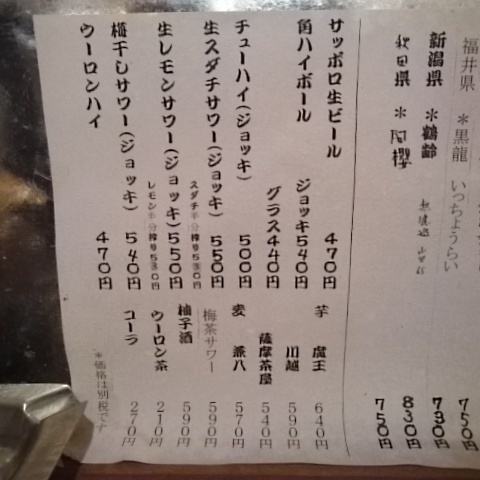 福井県 ＊黒龍 いっちょうらい 750円
新潟県 ＊鶴齢 730円
秋田県 ＊阿櫻 830円
750円
サッポロ生ビール 470円
角ハイボール ジョッキ540円
グラス440円
チューハイ(ジョッキ) 500円
生スダチサワー(ジョッキ) 550円
スダチ半分搾り530円
生レモンサワー(ジョッキ)550円
レモン半分搾り530円
梅干しサワー(ジョッキ) 540円
ウーロンハイ 470円
芋 魔王 640円
川越 590円
薩摩茶屋 540円
麦 兼八 570円
梅茶サワー 590円
柚子酒 590円
ウーロン茶 210円
コーラ 270円
＊価格は別税です